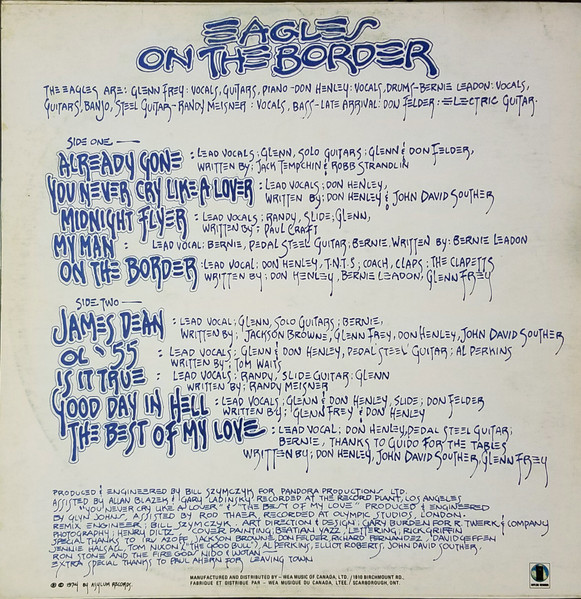 EAGLES
ON THE BORDER
THE EAGLES ARE: GLENN FREY: VOCALS, GUITARS, PIANO-DON HENLEY: VOCALS, DRUMS-BERNIE LEADON: VOCALS,
GUITARS, BANJO, STEEL GUITAR-RANDY MEISNER: VOCALS, BASS-LATE ARRIVAL: DON FELDER: ELECTRIC GUITAR.
SIDE ONE—
ALREADY GONE : LEAD VOCALS: GLENN, SOLO GUITARS: GLENN & DON FELDER,
WRITTEN BY: JACK TEMPCHIN & ROBB STRANDLIN
YOU NEVER CRY LIKE A LOVER : LEAD VOCALS: DON HENLEY,
WRITTEN BY: DON HENLEY & JOHN DAVID SOUTHER
MIDNIGHT FLYER : LEAD VOCALS: RANDY, SLIDE: GLENN,
WRITTEN BY: PAUL CRAFT
MY MAN : LEAD VOCAL: BERNIE, PEDAL STEEL GUITAR: BERNIE, WRITTEN BY: BERNIE LEADON
ON THE BORDER : LEAD VOCAL: DON HENLEY, T.N.T.S; COACH, CLAPS: THE CLAPETTS
WRITTEN BY: DON HENLEY, BERNIE LEADON, GLENN FREY
SIDE TWO—
JAMES DEAN : LEAD VOCALS: GLENN, SOLO GUITARS: BERNIE,
WRITTEN BY: JACKSON BROWNE, GLENN FREY, DON HENLEY, JOHN DAVID SOUTHER
OL '55 : LEAD VOCALS: GLENN & DON HENLEY, PEDAL STEEL GUITAR: AL PERKINS
WRITTEN BY: TOM WAITS
IS IT TRUE : LEAD VOCALS: RANDY, SLIDE GUITAR: GLENN
WRITTEN BY: RANDY MEISNER
GOOD DAY IN HELL : LEAD VOCALS: GLENN & DON HENLEY, SLIDE: DON FELDER
WRITTEN BY: GLENN FREY & DON HENLEY
THE BEST OF MY LOVE : LEAD VOCAL: DON HENLEY, PEDAL STEEL GUITAR:
BERNIE, THANKS TO GUIDO FOR THE TABLES
WRITTEN BY: DON HENLEY, JOHN DAVID SOUTHER, GLENN FREY
PRODUCED & ENGINEERED BY BILL SZYMCZYK FOR PANDORA PRODUCTIONS LTD.
ASSISTED BY ALLAN BLAZEK & GARY LADINSKY RECORDED AT THE RECORD PLANT, LOS ANGELES
"YOU NEVER CRY LIKE A LOVER" & "THE BEST OF MY LOVE" PRODUCED & ENGINEERED
BY GLYN JOHNS ASSISTED BY ROD THAER, RECORDED AT OLYMPIC STUDIOS, LONDON.
REMIX ENGINEER: BILL SZYMCZYK. ART DIRECTION & DESIGN: GARY BURDEN FOR R. TWERK & COMPANY
PHOTOGRAPHY: HENRY DILTZ. COVER PAINTING: BEATIAN YAZZ LETTERING: RICK GRIFFIN
SPECIAL THANKS TO: IRV AZOFF, JACKSON BROWNE, DON FELDER, RICHARD FERNANDEZ, DAVID GEFFEN
JENNIE HALSALL, TOM NIXON ("THE GOOD BULL") AL PERKINS, ELLIOT ROBERTS, JOHN DAVID SOUTHER.
RON STONE AND THE FIRE GODS NIDO & WOTAN—
EXTRA SPECIAL THANKS TO PAUL AHERN FOR LEAVING TOWN
© ℗ 1974 BY ASYLUM RECORDS.
MANUFACTURED AND DISTRIBUTED BY - WEA MUSIC OF CANADA, LTD. / 1810 BIRCHMOUNT RD.,
FABRIQUE ET DISTRIBUE PAR - WEA MUSIQUE DU CANADA, LTEE. / SCARBOROUGH, ONT.